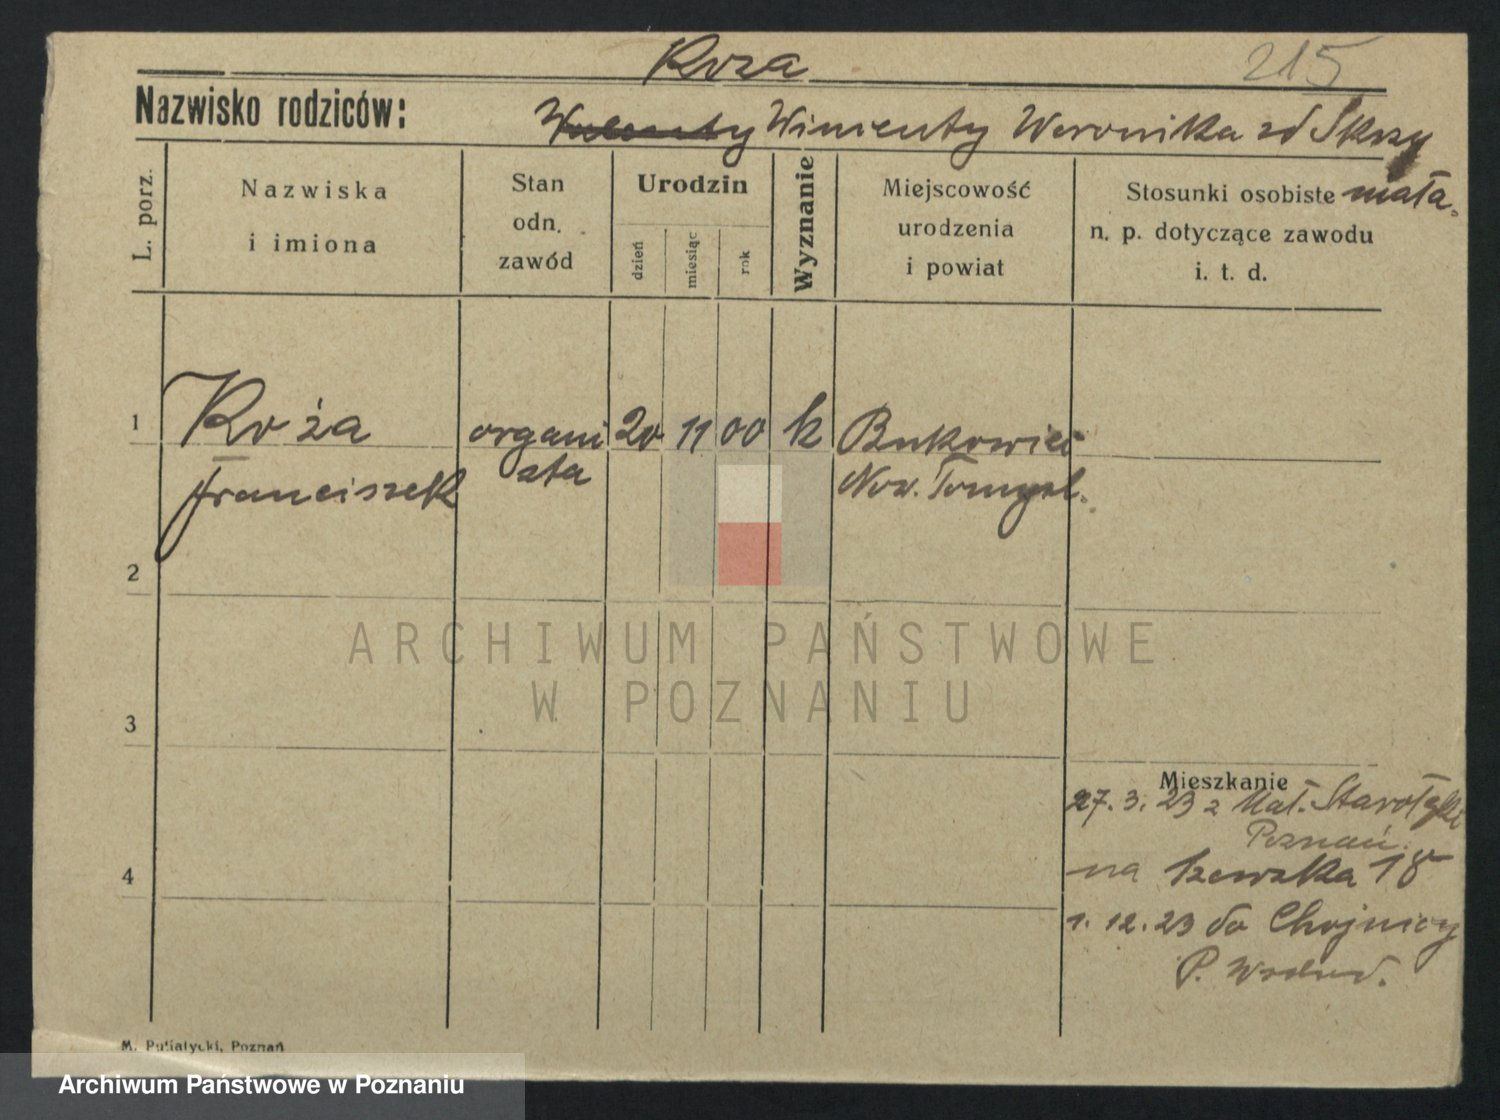 Roza
215
Nazwisko rodziców: Walenty Winienty Weronika zd Skrzy
mała.
L. porz.
Nazwiska
i imiona
Stan
odn.
zawód
Urodzin
dzień
miesiąc
rok
Wyznanie
Miejscowość
urodzenia
i powiat
Stosunki osobiste
n. p. dotyczące zawodu
i. t. d.
1
Roża
Franciszek
organi
sta
20 11 00 k
Bukowiec
Now. Tomysl.
2
ARCHIWUM PAŃSTWOWE
W POZNANIU
3
Mieszkanie
27. 3. 23 z Mał. Starołęki
Poznań.
4
na 18
1. 12. 23 do Chojnicy
P.
M. Putiatycki, Poznań
Archiwum Państwowe w Poznaniu